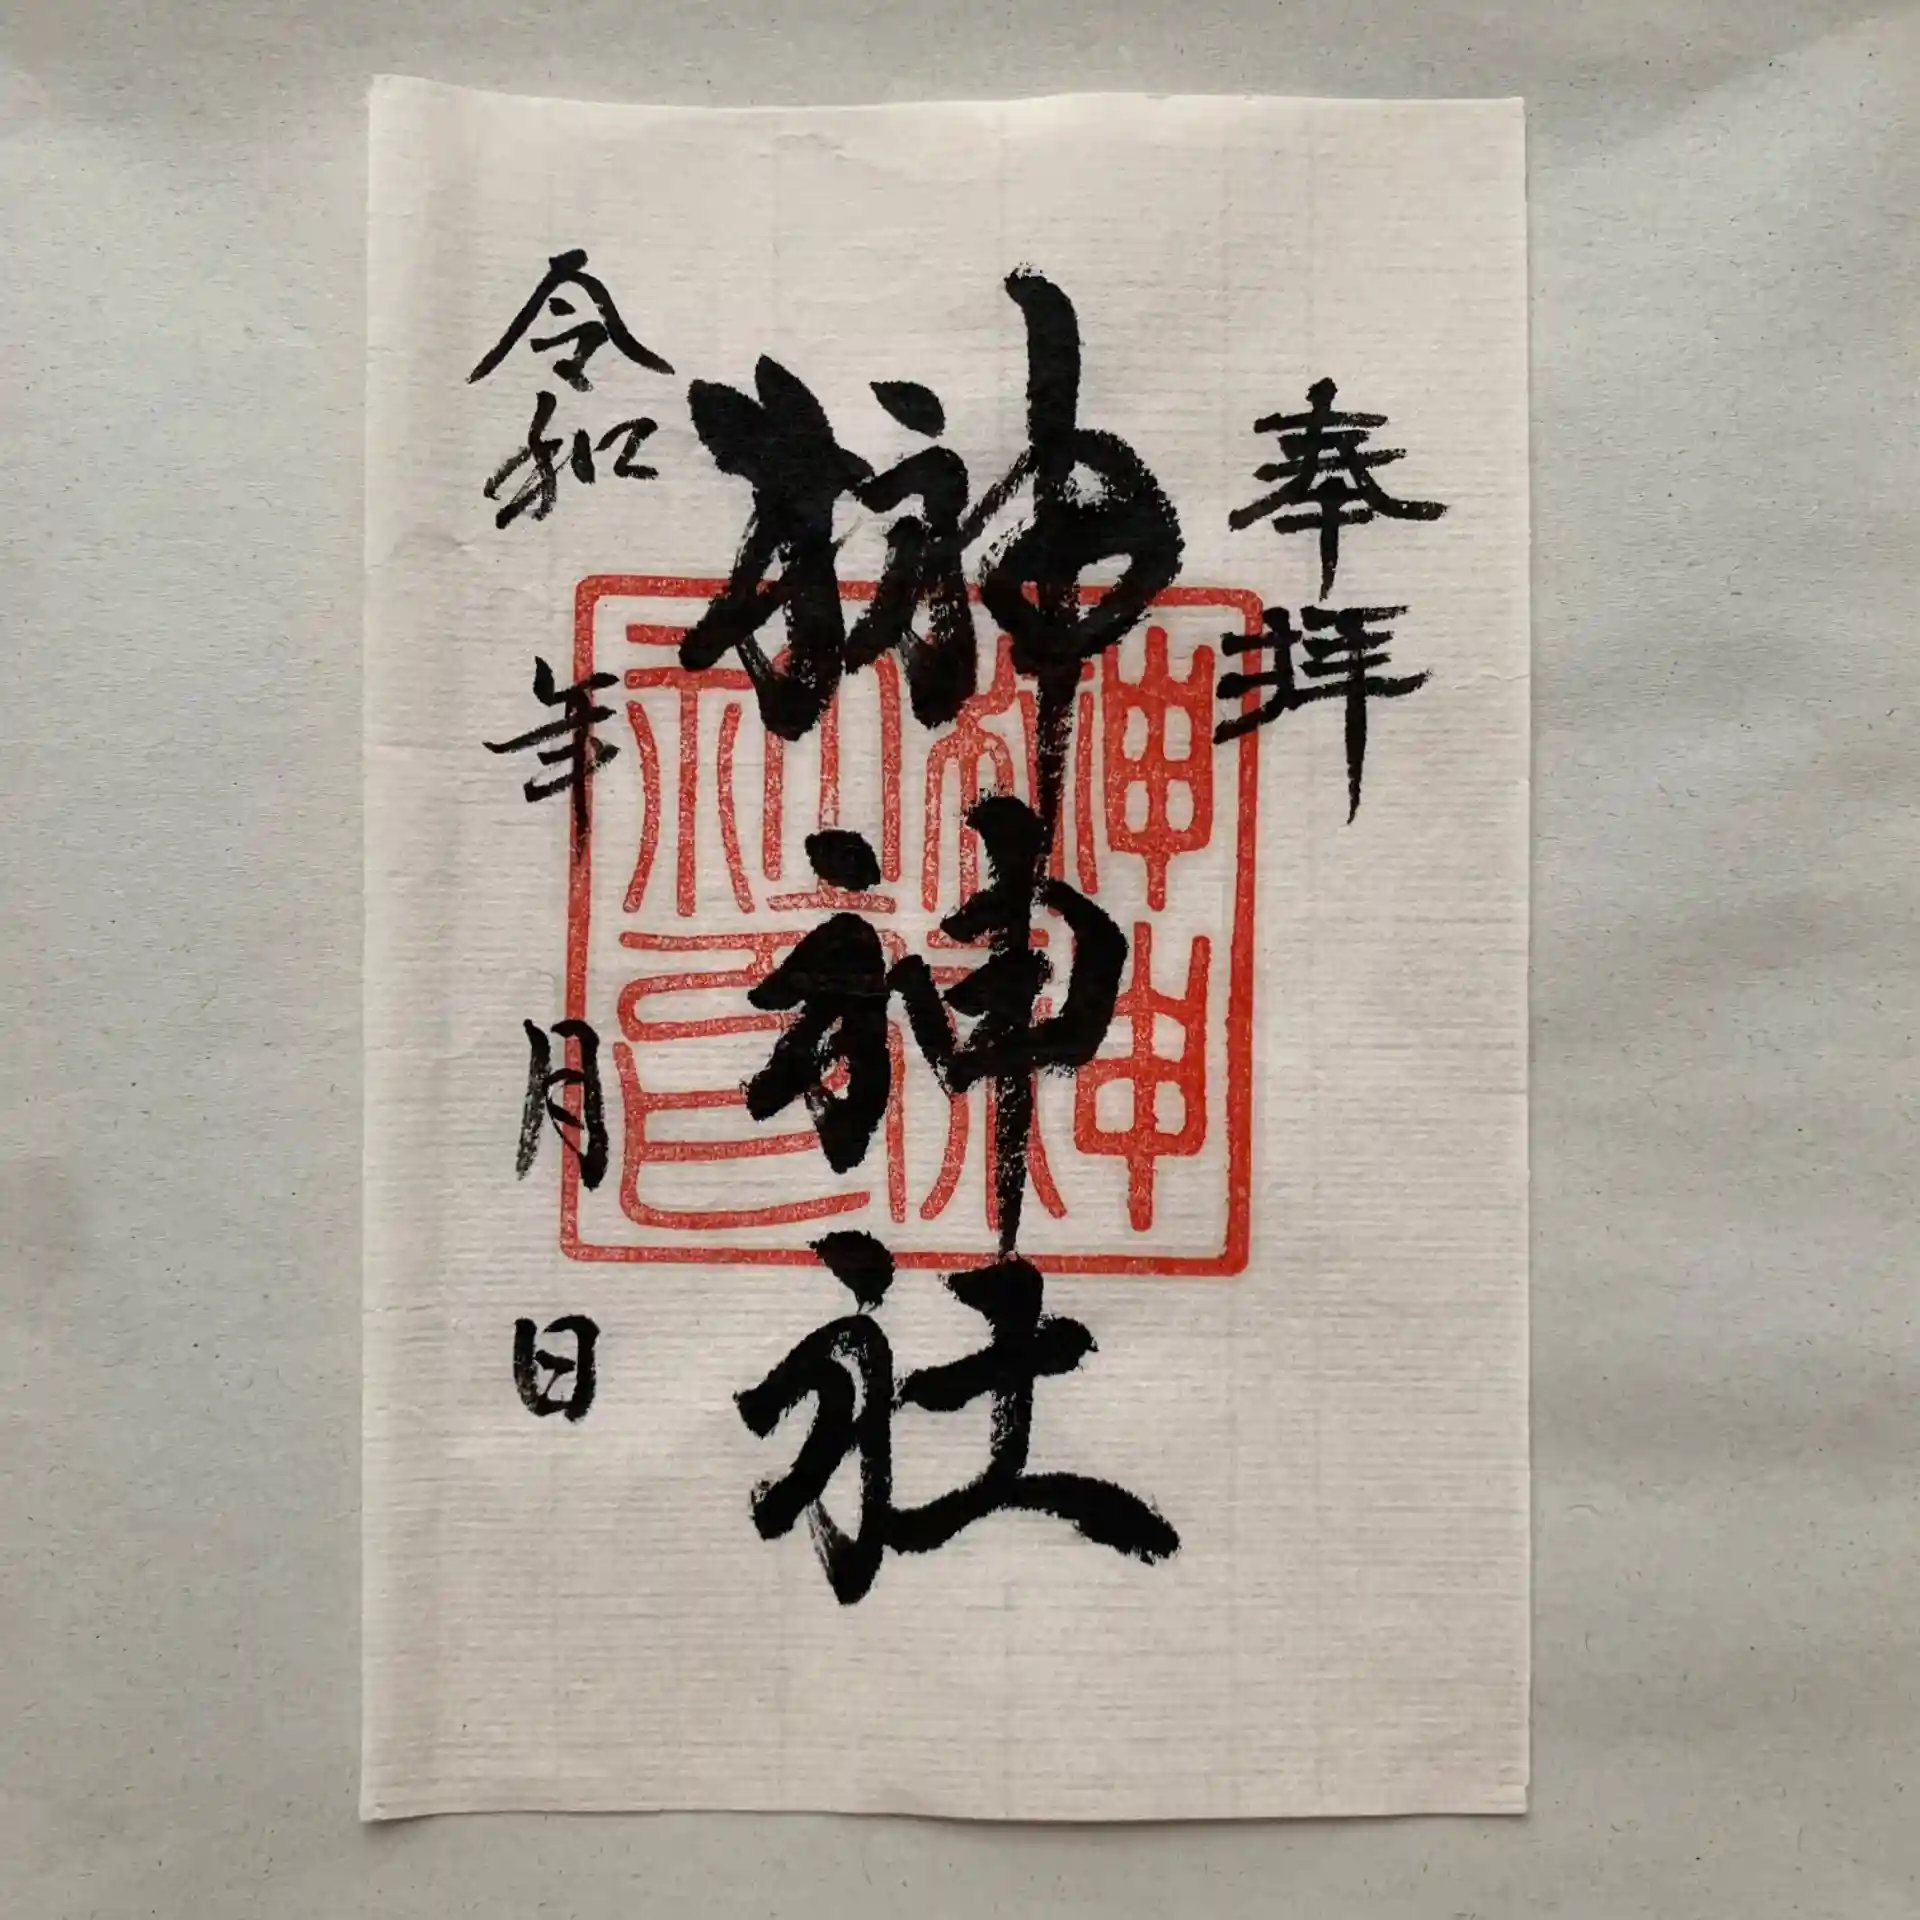 奉拝
榊神社
令和 年 月 日
榊神
社印